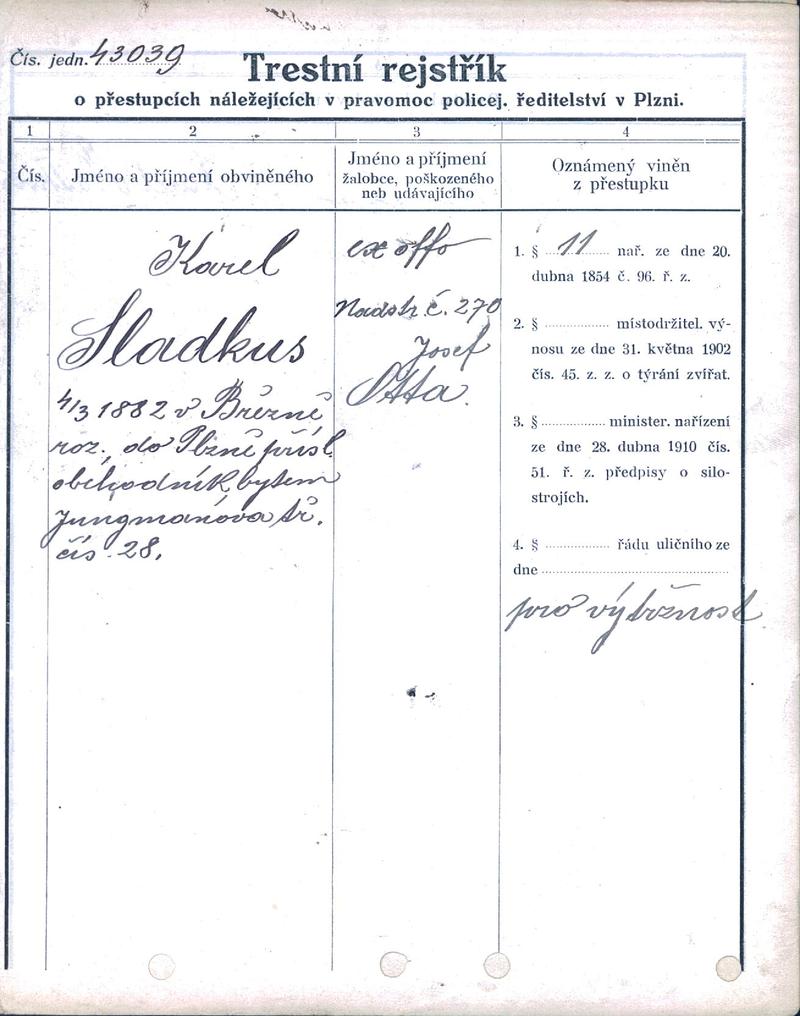 Čís. jedn. 43039
Trestní rejstřík
o přestupcích náležejících v pravomoc policej. ředitelství v Plzni.
1 2 3 4
Čís.
Jméno a příjmení obviněného
Jméno a příjmení
žalobce, poškozeného
neb udávajícího
Oznámený viněn
z přestupku
Karel
Sladkus
4/3 1882 v Březně
roz., do Plzně přísl.
obchodník, bytem
Jungmanova tř.
čís. 28.
ex offo
Nadstr. č. 270
Josef
Otta.
1. § 11 nař. ze dne 20.
dubna 1854 č. 96. ř. z.
2. § místodržitel. vý-
nosu ze dne 31. května 1902
čís. 45. z. z. o týrání zvířat.
3. § minister. nařízení
ze dne 28. dubna 1910 čís.
51. ř. z. předpisy o silo-
strojích.
4. § řádu uličního ze
dne
pro výtržnost